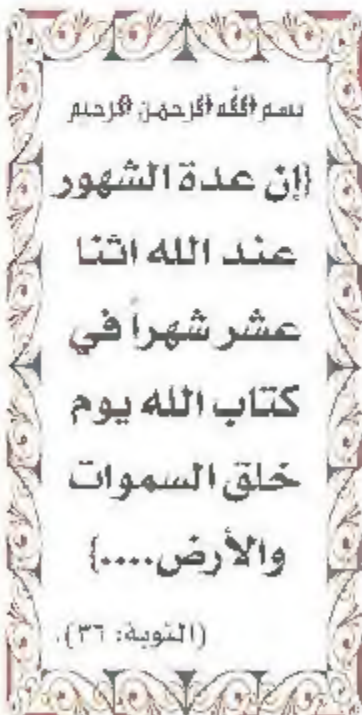 بسم الله الرحمن الرحيم
{إن عدة الشهور
عند الله اثنا
عشر شهراً في
كتاب الله يوم
خلق السموات
والأرض....}
(التوبة: ٣٦).